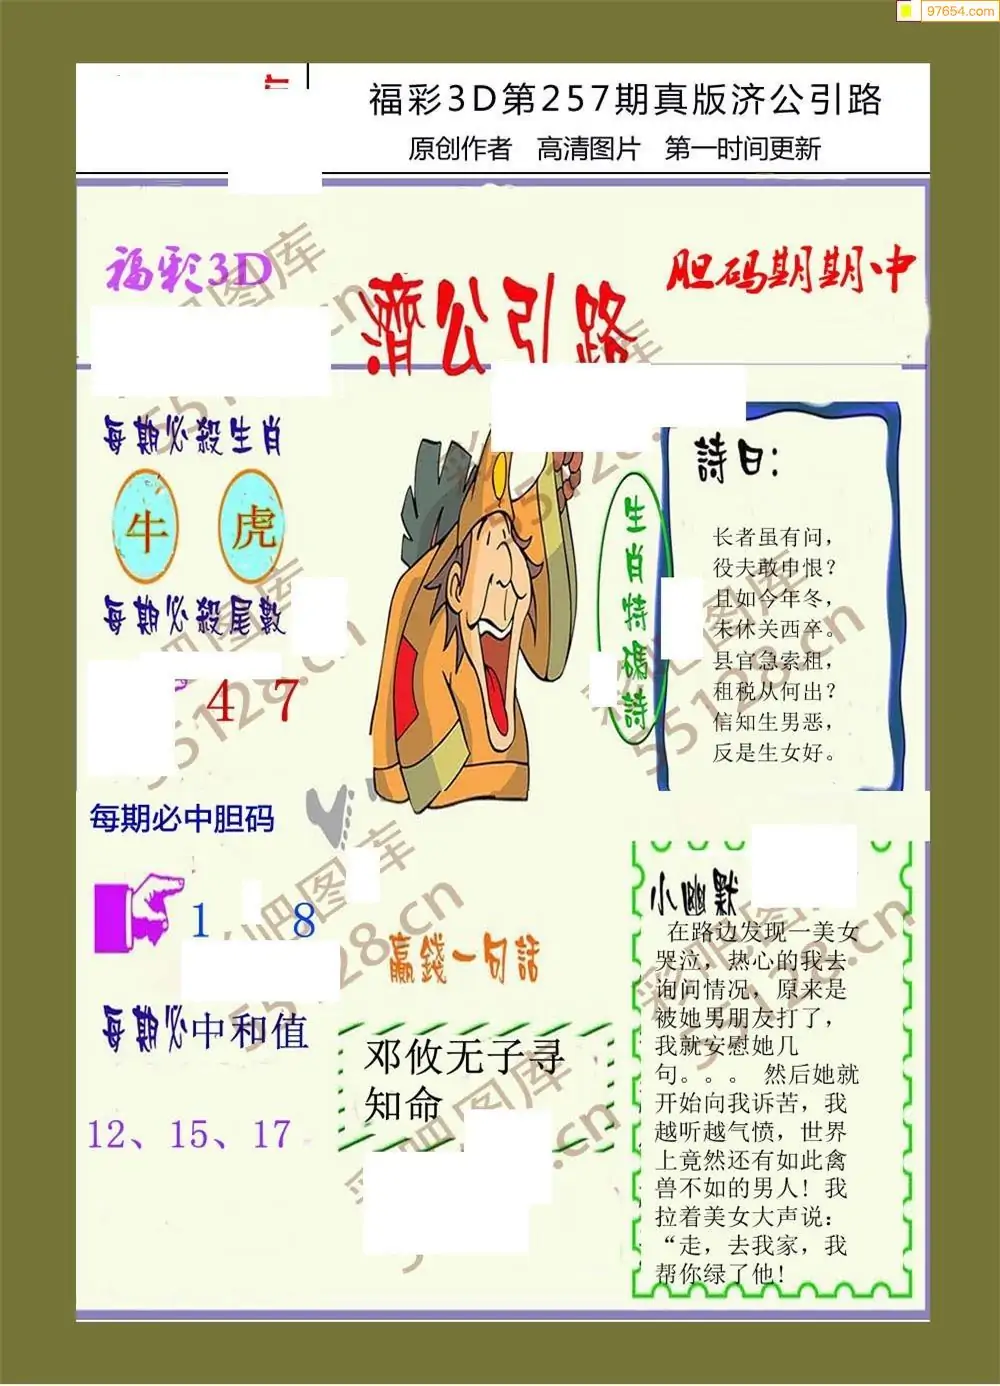 97654.com
福彩3D第257期真版济公引路
原创作者 高清图片 第一时间更新
福彩3D
胆码期期中
濟公引路
每期必殺生肖
牛 虎
每期必殺尾數
4 7
每期必中胆码
1 8
每期必中和值
12、15、17
生肖特碼詩
詩曰:
长者虽有问，
役夫敢申恨？
且如今年冬，
未休关西卒。
县官急索租，
租税从何出？
信知生男恶，
反是生女好。
赢錢一句話
邓攸无子寻
知命
小幽默
在路边发现一美女
哭泣，热心的我去
询问情况，原来是
被她男朋友打了，
我就安慰她几
句。。。 然后她就
开始向我诉苦，我
越听越气愤，世界
上竟然还有如此禽
兽不如的男人！我
拉着美女大声说：
“走，去我家，我
帮你绿了他!
彩吧图库
55128.cn
彩吧图库
55128.cn
彩吧图库
55128.cn
彩吧图库
55128.cn
彩吧图库
55128.cn